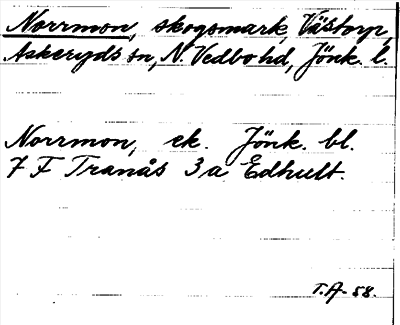 Norrmon, skogsmark, Västorp,
Askeryds sn, N. Vedbo hd, Jönk. l.
Norrmon, ek. Jönk. bl.
7 F Tranås 3 a Edhult.
T.A. 58.